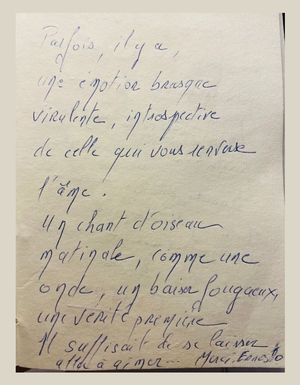 Parfois, il y a,
une émotion brusque
virulente, introspective
de celle qui vous renverse
l'âme.
Un chant d'oiseau
matinale, comme une
onde, un baiser fougueux,
une vérité première
Il suffisait de se laisser
aller à aimer... Merci Ernesto